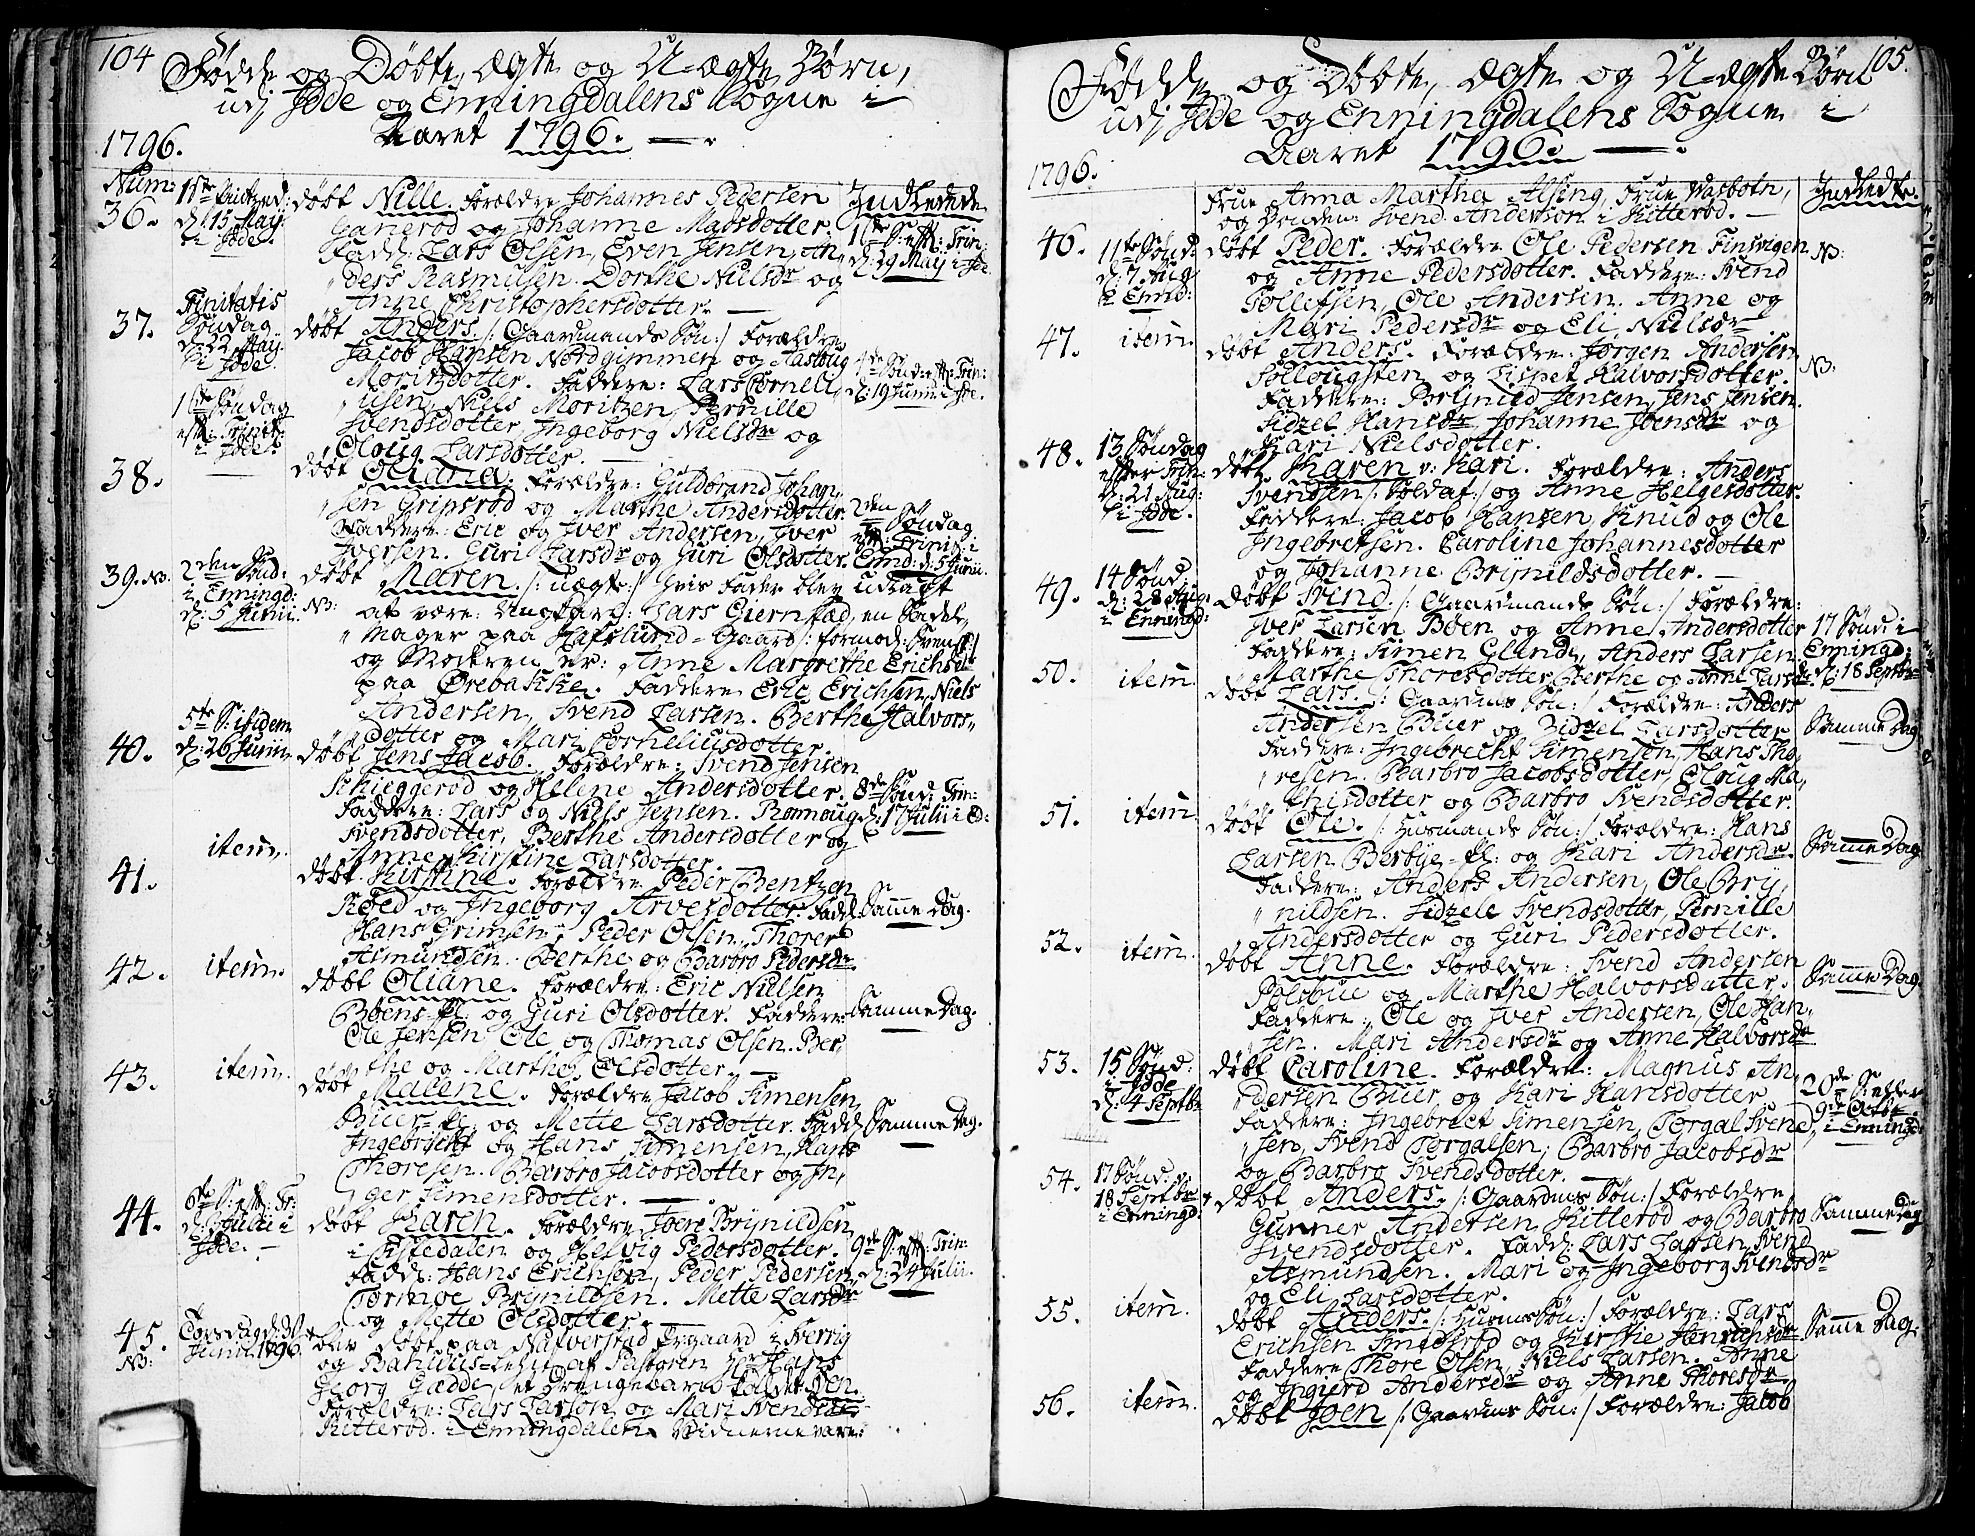 104
Fødde og Døbte, ægte og U-ægte Børn,
udj Idde og Enningdalens Sogne i
Aaret 1796.
1796.
Num:
36.
1ste Pintzed:
d: 15 May
i Idde.
døbt Nille. Forældre Johannes Pedersen
Ganerød og Johanne Madsdotter.
Fadd: Lars Olsen, Even Jensen, An„
„ders Rasmusen. Dorthe Nielsdr og
Anne Christophersdotter.
Indledede
1ste S: eft: Trin:
d: 29 Maij i Idde.
37.
Trinitatis
Søndag
d: 22 May
i Idde.
døbt Anders. /: Gaardmands Søn :/ Forældre
Jacob Hansen Nordgimmen og Aasloug
Moritzdotter. Faddere: Lars Cornelli„
„usen, Niels Moritzen, Pernille
Svendsdotter, Ingeborg Nielsdr og
Oloug Larsdotter.
4de Sønd: eft: Trin:
d: 19 Junii i Idde.
38.
1ste Søndag
eft: Trinit:
i Idde.
døbt Oliana. Forældre: Guldbrand Johan„
„sen Gripsrød og Marthe Andersdotter.
Faddere: Eric og Iver Andersen, Iver
Iversen. Guri Larsdr og Guri Olsdotter.
2den Søndag
eft: Trinit: i
Emd: d: 5 Junii.
39. NB.
2den Sønd:
i Enningd:
d: 5 Junii.
NB:
døbt Maren. /: uægte :/ Hvis Fader blev udlagt
at være: Ungkarl: Lars Giernstad, en Sadel„
„mager paa Hafslund-Gaard /: formod: Svensk :/
og Moderen er: Anne Margrethe Erichsdr
paa Ørebakke. Faddere Eric Erichsen, Niels
Andersen, Svend Larsen. Berthe Halvors„
„dotter og Mari Corneliusdotter.
40.
5te S: ibidem
d: 26 Junii
døbt Jens Jacob. Forældre: Svend Jensen
Schieggerød og Helene Andersdotter.
Faddere: Lars og Niels Jensen. Ronnoug
Svendsdotter, Berthe Andersdotter og
Anne Kirstine Larsdotter.
8de Sønd: Trin:
d: 17 Julii i E:
41.
item.
døbt Kirstine. Forældre Peder Bentzen
Røed og Ingeborg Arvesdotter. Fadd:
Hans Grimsen, Peder Olsen, Thorer
Asmundsen. Berthe og Barbro Pedersdr
Samme Dag.
42.
item.
døbt Oliane. Forældre: Eric Nielsen
Bøens-Pl: og Guri Olsdotter. Faddere:
Ole Jensen Ole og Thomas Olsen. Ber„
„the og Marthe Olsdotter.
Samme Dag.
43.
item.
døbt Malene. Forældre Jacob Simensen
Buer-Pl: og Mette Larsdotter. Fadd:
Ingebricht og Hans Simensen, Hans
Thoresen. Barbro Jacobsdotter og In„
„ger Simensdotter.
Samme Dag.
44.
6te S: eft: Tr:
d: 3 Julii i
Idde.
døbt Karen. Forældre Joen Brynildsen
i Systedalen og Helvig Pedersdotter.
Fadd: Hans Erichsen, Peder Pedersen
Tormoe Brynildsen. Mette Larsdr
og Mette Olsdotter.
9de S: eft: Trin:
d: 24 Julii.
45.
NB:
Torsdag d: 30
Junii 1796.
blev døbt paa Nafverstad Prgaard i Sverrig
og Bahuus-Lehn af Pastoren Hr Hans
Georg Gædde, et Drengebarn kaldet Jen.
Forældre: Lars Larson og Mari Svendsdr
Kitterød i Enningdalen. Vidnerne vare:
105.
Fødde og Døbte, ægte og U-ægte Børn
udj Idde og Enningdalens Sogne i
Aaret 1796.
1796.
Frue Anna Martha Alsing, Frue Wasbotn,
og Bonden Svend Anderson i Kitterød.
Indledte.
46.
11te Sønd:
d: 7 Aug
i Ennd:
døbt Peder. Forældre Ole Pedersen Finsvigen
og Anne Pedersdotter. Faddere: Svend
Tollefsen, Ole Andersen. Anne og
Mari Pedersdr og Eli Nielsdr
NB:
47.
item.
døbt Anders. Forældre: Jørgen Andersen
Sollougsten og Lispet Halvorsdotter.
Faddere: Borgnild Jensen, Jens Jensen.
Sidzel Hansdr Johanne Joensdr og
Kari Nielsdotter.
NB:
48.
13 Søndag
efter Trin:
d: 21 Aug:
i Idde.
døbt Karen v: Kari. Forældre: Anders
Svendsen /: Soldat :/ og Anne Helgesdotter.
Faddere: Jacob Hansen, Knud og Ole
Ingebretsen. Caroline Johannesdotter
og Johanne Brynildsdotter.
49.
14 Sønd:
d: 28 Aug:
i Enningd:
døbt Svend. /: Gaardmands Søn :/ Forældre:
Iver Larsen Bøen og Anne Andersdotter
Faddere: Simen Glende, Anders Larsen
Marthe Thoresdotter, Berthe og Anne Larsdr
17 Sønd: i
Enningd:
d: 18 Septbr
50.
item.
døbt Lars. /: Gaardms Søn :/ Forældre: Anders
Andersen Buer og Zidzel Larsdotter
Faddere: Ingebrecht Simensen, Hans Tho„
„resen. Barbro Jacobsdotter, Oloug Ma„
„thisdotter og Barbro Svendsdotter.
Samme Dag
51.
item.
døbt Ole. /: Husmands Søn :/ Forældre: Hans
Larsen Berbye-Pl: og Kari Andersdr
Faddere: Anders Andersen, Ole Bry„
„nildsen. Sidzele Svendsdotter, Pernille
Andersdotter og Guri Pedersdotter.
Samme Dag
52.
item.
døbt Anne. Forældre: Svend Andersen
Polsbue og Marthe Halvorsdatter.
Faddere: Ole og Iver Andersen, Ole Han„
„sen. Mari Andersdr og Anne Halvorsdr
Samme Dag.
53.
15 Sønd.
i Idde
d: 4 Septbr
døbt Caroline. Forældre: Magnus An„
„dersen Buer og Kari Hansdotter
Faddere: Ingebrect Simensen, Torgal Svend„
„sen, Svend Torgalsen, Barbro Jacobsdr
og Barbro Svendsdotter.
20de S: efter
9de Octbr
i Enningd:
54.
17 Sønd: d:
18 Septbr
i Enningd:
døbt Anders. /: Gaardms Søn :/ Forældre
Gunner Andersen Kitterød og Barbro
Svendsdotter. Fadd: Lars Larsen, Svend
Asmundsen. Mari og Ingeborg Svendsdr
og Eli Larsdotter.
Samme Dag
55.
item.
døbt Anders. /: Husms Søn :/ Forældre: Lars
Erichsen Smiderød og Kirstie Henrichsdr
Faddere Thore Olsen, Niels Larsen. Anne
og Ingierd Andersdr og Anne Thoresdr
Samme Dag.
56.
item.
døbt Joen /: Gaardms Søn :/ Forældre: Jacob